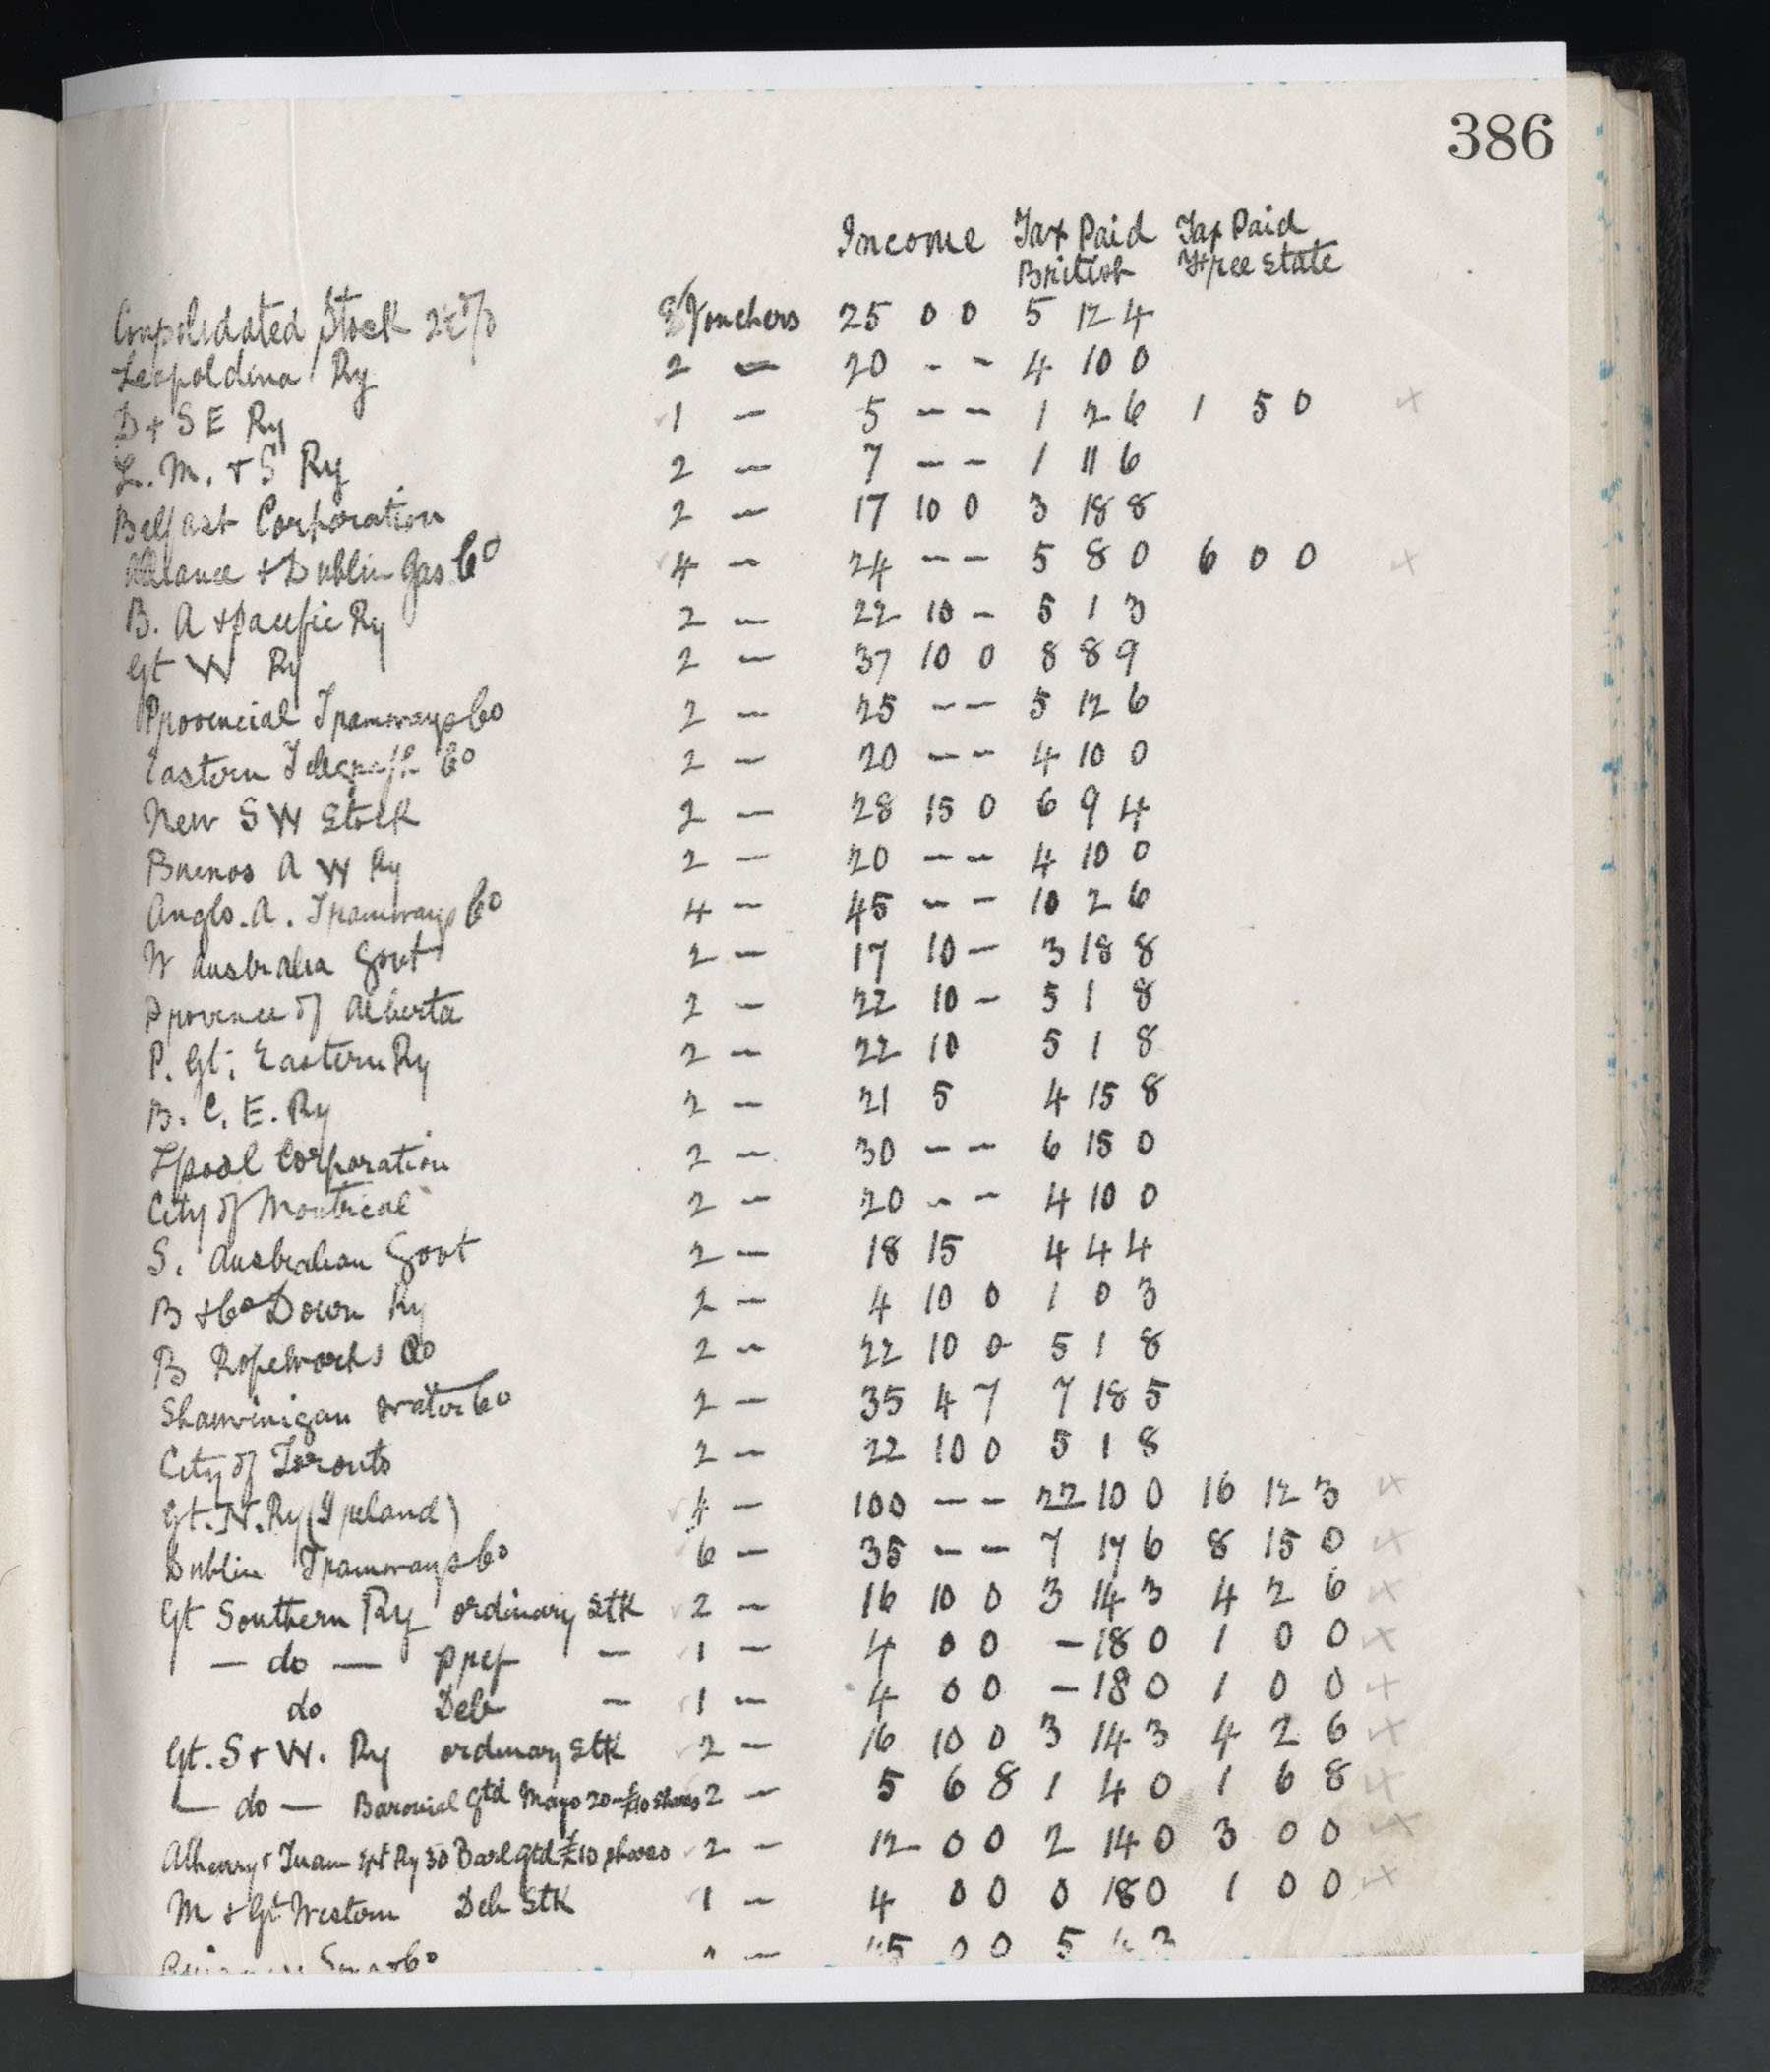 386
Income Tax Paid Tax Paid
British Free State
Consolidated Stock 2½% 8 Vouchers 25 0 0 5 12 4
Leopoldina Ry 2 — 20 - - 4 10 0
D + S E Ry 1 — 5 - - 1 2 6 1 5 0 x
L. M. + S Ry 2 — 7 - - 1 11 6
Belfast Corporation 2 — 17 10 0 3 18 8
Alliance + Dublin Gas Co 4 — 24 - - 5 8 0 6 0 0 x
B. A + Pacific Ry 2 — 22 10 - 5 1 3
Gt W Ry 2 — 37 10 0 8 8 9
Provencial Tramways Co 2 — 25 - - 5 12 6
Eastern Telegraph Co 2 — 20 - - 4 10 0
New S W Stock 2 — 28 15 0 6 9 4
Buenos A W Ry 2 — 20 - - 4 10 0
Anglo. A. Tramways Co 4 — 45 - - 10 2 6
W Australia Govt 2 — 17 10 - 3 18 8
Province of Alberta 2 — 22 10 - 5 1 8
P. Gt. Eastern Ry 2 — 22 10 5 1 8
B. C. E. Ry 2 — 21 5 4 15 8
Lpool Corporation 2 — 30 - - 6 15 0
City of Montreal 2 — 20 - - 4 10 0
S. Australian Govt 2 — 18 15 4 4 4
B + Co Down Ry 2 — 4 10 0 1 0 3
B Ropeworks Co 2 — 22 10 0 5 1 8
Shawinigan Water Co 2 — 35 4 7 7 18 5
City of Toronto 2 — 22 10 0 5 1 8
Gt. N. Ry (Ireland) 4 — 100 - - 22 10 0 16 12 3 x
Dublin Tramways Co 6 — 35 - - 7 17 6 8 15 0 x
Gt Southern Ry ordinary Stk 2 — 16 10 0 3 14 3 4 2 6 x
— do — Pref — 1 — 4 0 0 - 18 0 1 0 0 x
do Deb — 1 — 4 0 0 - 18 0 1 0 0 x
Gt. S + W. Ry ordinary Stk 2 — 16 10 0 3 14 3 4 2 6 x
— do — Baronial Gtd Mayo 20 - £10 Shares 2 — 5 6 8 1 4 0 1 6 8 x
Athenry + Tuam Ext Ry 30 Barl gtd £10 shares 2 — 12 0 0 2 14 0 3 0 0 x
M + Gt Western Deb Stk 1 — 4 0 0 0 18 0 1 0 0 x
0 0 5